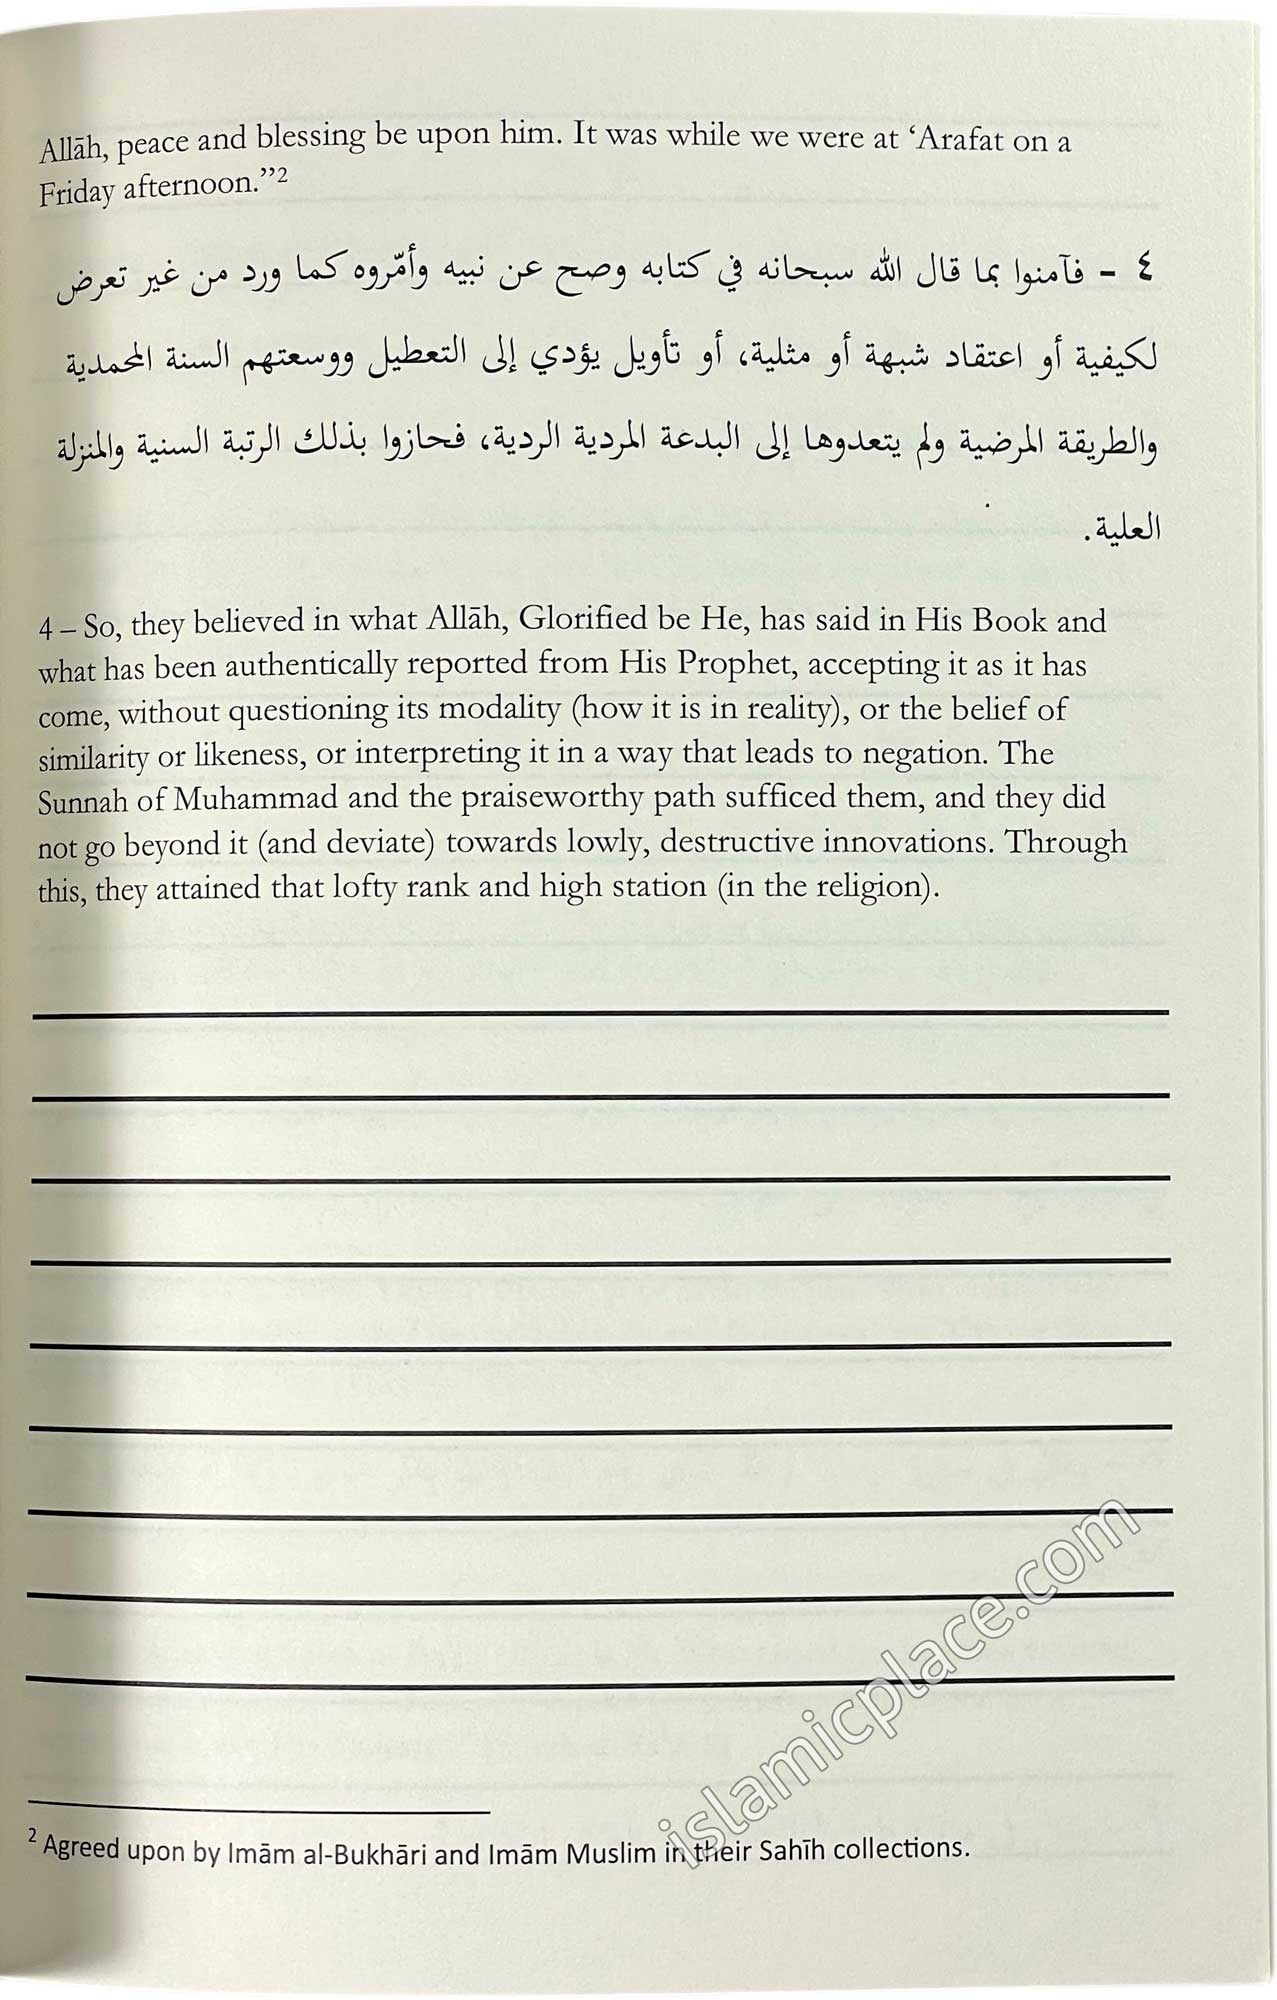 Allāh, peace and blessing be upon him. It was while we were at ‘Arafat on a
Friday afternoon.”2
٤ - فآمنوا بما قال الله سبحانه في كتابه وصح عن نبيه وأمّروه كما ورد من غير تعرض
لكيفية أو اعتقاد شبهة أو مثلية، أو تأويل يؤدي إلى التعطيل ووسعتهم السنة المحمدية
والطريقة المرضية ولم يتعدوها إلى البدعة المردية الردية، فحازوا بذلك الرتبة السنية والمنزلة
العلية.
4 – So, they believed in what Allāh, Glorified be He, has said in His Book and
what has been authentically reported from His Prophet, accepting it as it has
come, without questioning its modality (how it is in reality), or the belief of
similarity or likeness, or interpreting it in a way that leads to negation. The
Sunnah of Muhammad and the praiseworthy path sufficed them, and they did
not go beyond it (and deviate) towards lowly, destructive innovations. Through
this, they attained that lofty rank and high station (in the religion).
islamicplace.com
2 Agreed upon by Imām al-Bukhāri and Imām Muslim in their Sahīh collections.